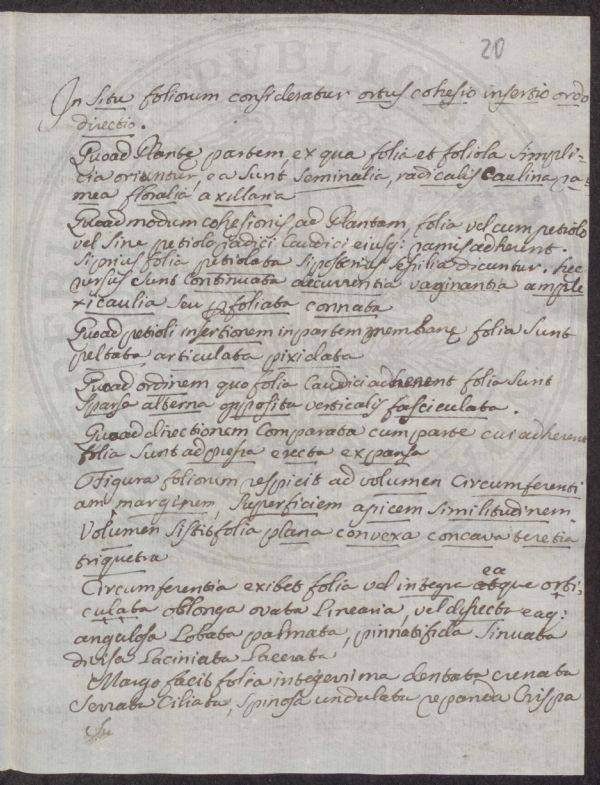 20
In Situ foliorum consideratur ortus cohesio insertio ordo
directio.
Quoad Plantę partem, ex qua folia et foliola simpli-
cia oriuntur, ea sunt seminalia, radicalis caulina ra-
mea floralia axillaria
Quoad modum cohesionis ad Plantam, folia vel cum petiolo
vel sine petiolo radici Caudici eiusq: ramis adherent.
Si prius folia petiolata si posterius sessilia dicuntur. hęc
rursus sunt continuata decurrentia vaginantia ample
xicaulia seu perfoliata connata
Quoad petioli insertionem in partem membranę folia sunt
peltata, articulata pixidata
Quoad ordinem quo folia Caudici adherent folia sunt
sparsa alterna opposita verticalis fasciculata.
Quoad directionem comparata cum parte cui adherent
folia sunt adpressa erecta expansa
Figura foliorum respicit ad volumen Circumferenti
am, marginem, superficiem apicem similitudinem
Volumen sistit folia plana convexa concava teretia
triquetra
Circumferentia exibet folia vel integra eaque orbi,
culata oblonga ovata Linearia, vel dissecta eaq:
angulosa Lobata palmata, pinnatifida sinuata
divisa Laciniata Lacerata
Margo facit folia integerrima dentata crenata
serrata Ciliata, spinosa undulata repanda Crispa